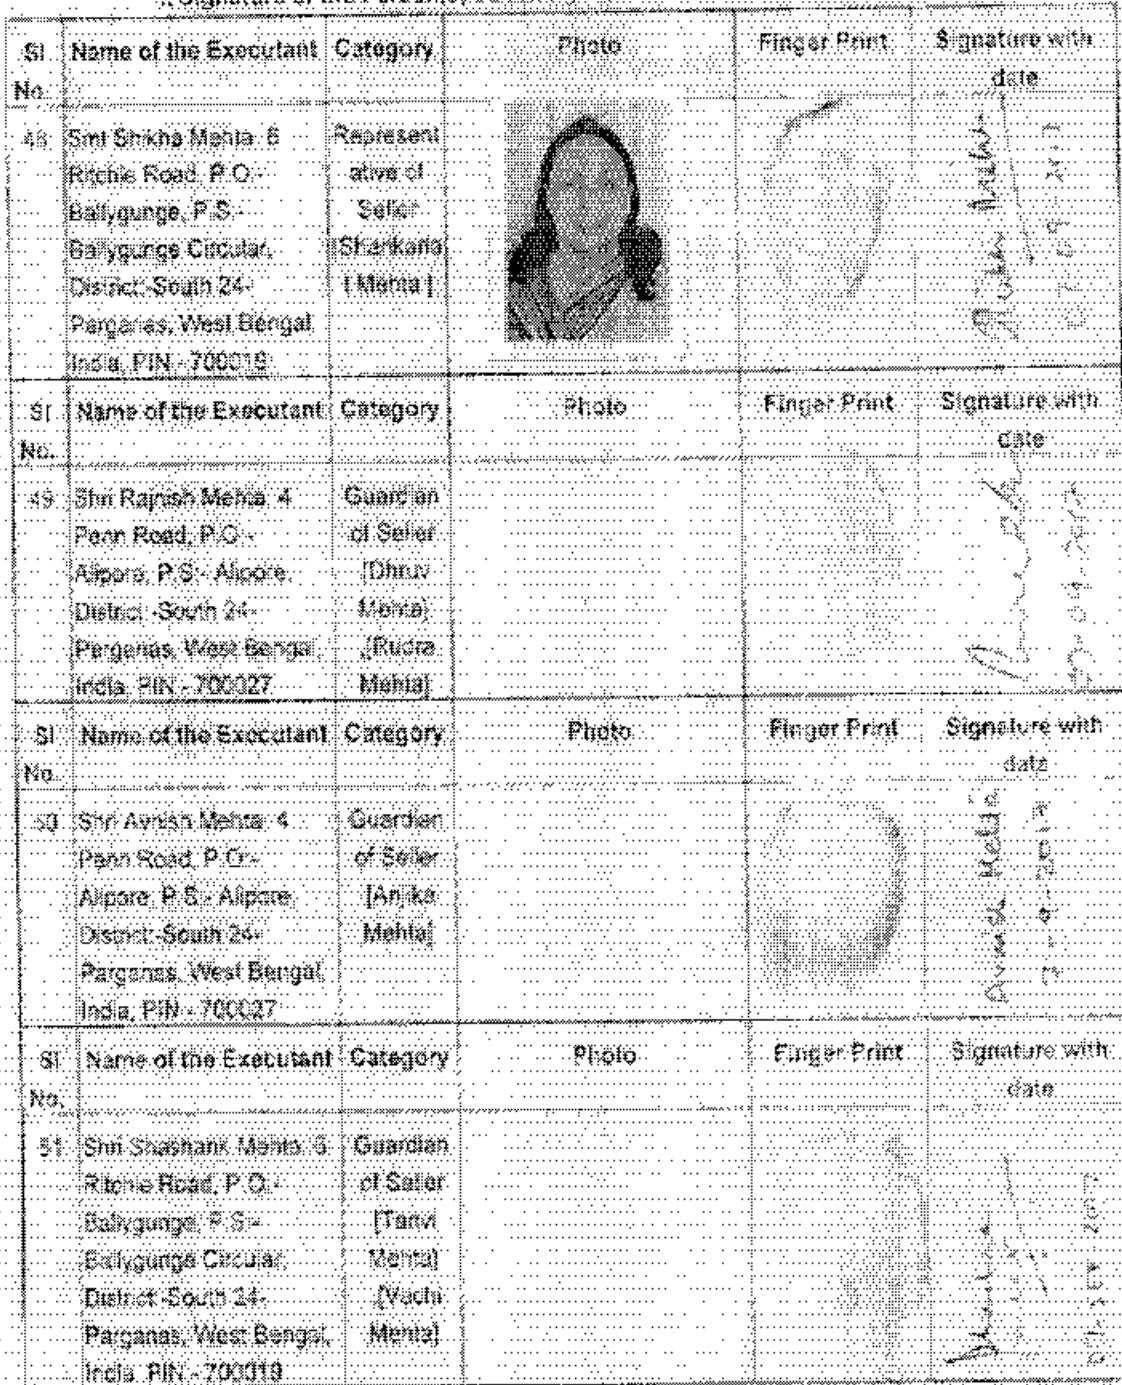 Signature of the Person(s)
Sl No. Name of the Executant Category Photo Finger Print Signature with date
48 Smt Shikha Mehta 6 Ritchie Road, P.O.- Ballygunge, P.S.- Ballygunge Circular, District:-South 24-Parganas, West Bengal, India, PIN - 700019
Representative of Seller
Mehta ]
Sl No. Name of the Executant Category Photo Finger Print Signature with date
49 Shri Rajnish Mehta 4 Penn Road, P.O:- Alipore, P.S:- Alipore, District:-South 24-Parganas, West Bengal, India, PIN - 700027
Guardian of Seller [Dhruv Mehta] ,[Rudra Mehta]
Sl No. Name of the Executant Category Photo Finger Print Signature with date
50 Shri Avnish Mehta 4 Penn Road, P.O:- Alipore, P.S:- Alipore, District:-South 24-Parganas, West Bengal, India, PIN - 700027
Guardian of Seller [Anjika Mehta]
Avnish Mehta
Sl No. Name of the Executant Category Photo Finger Print Signature with date
51 Shri Shashank Mehta 6 Ritchie Road, P.O.- Ballygunge, P.S:- Ballygunge Circular, District:-South 24-Parganas, West Bengal, India, PIN - 700019
Guardian of Seller [Tanvi Mehta] Mehta]